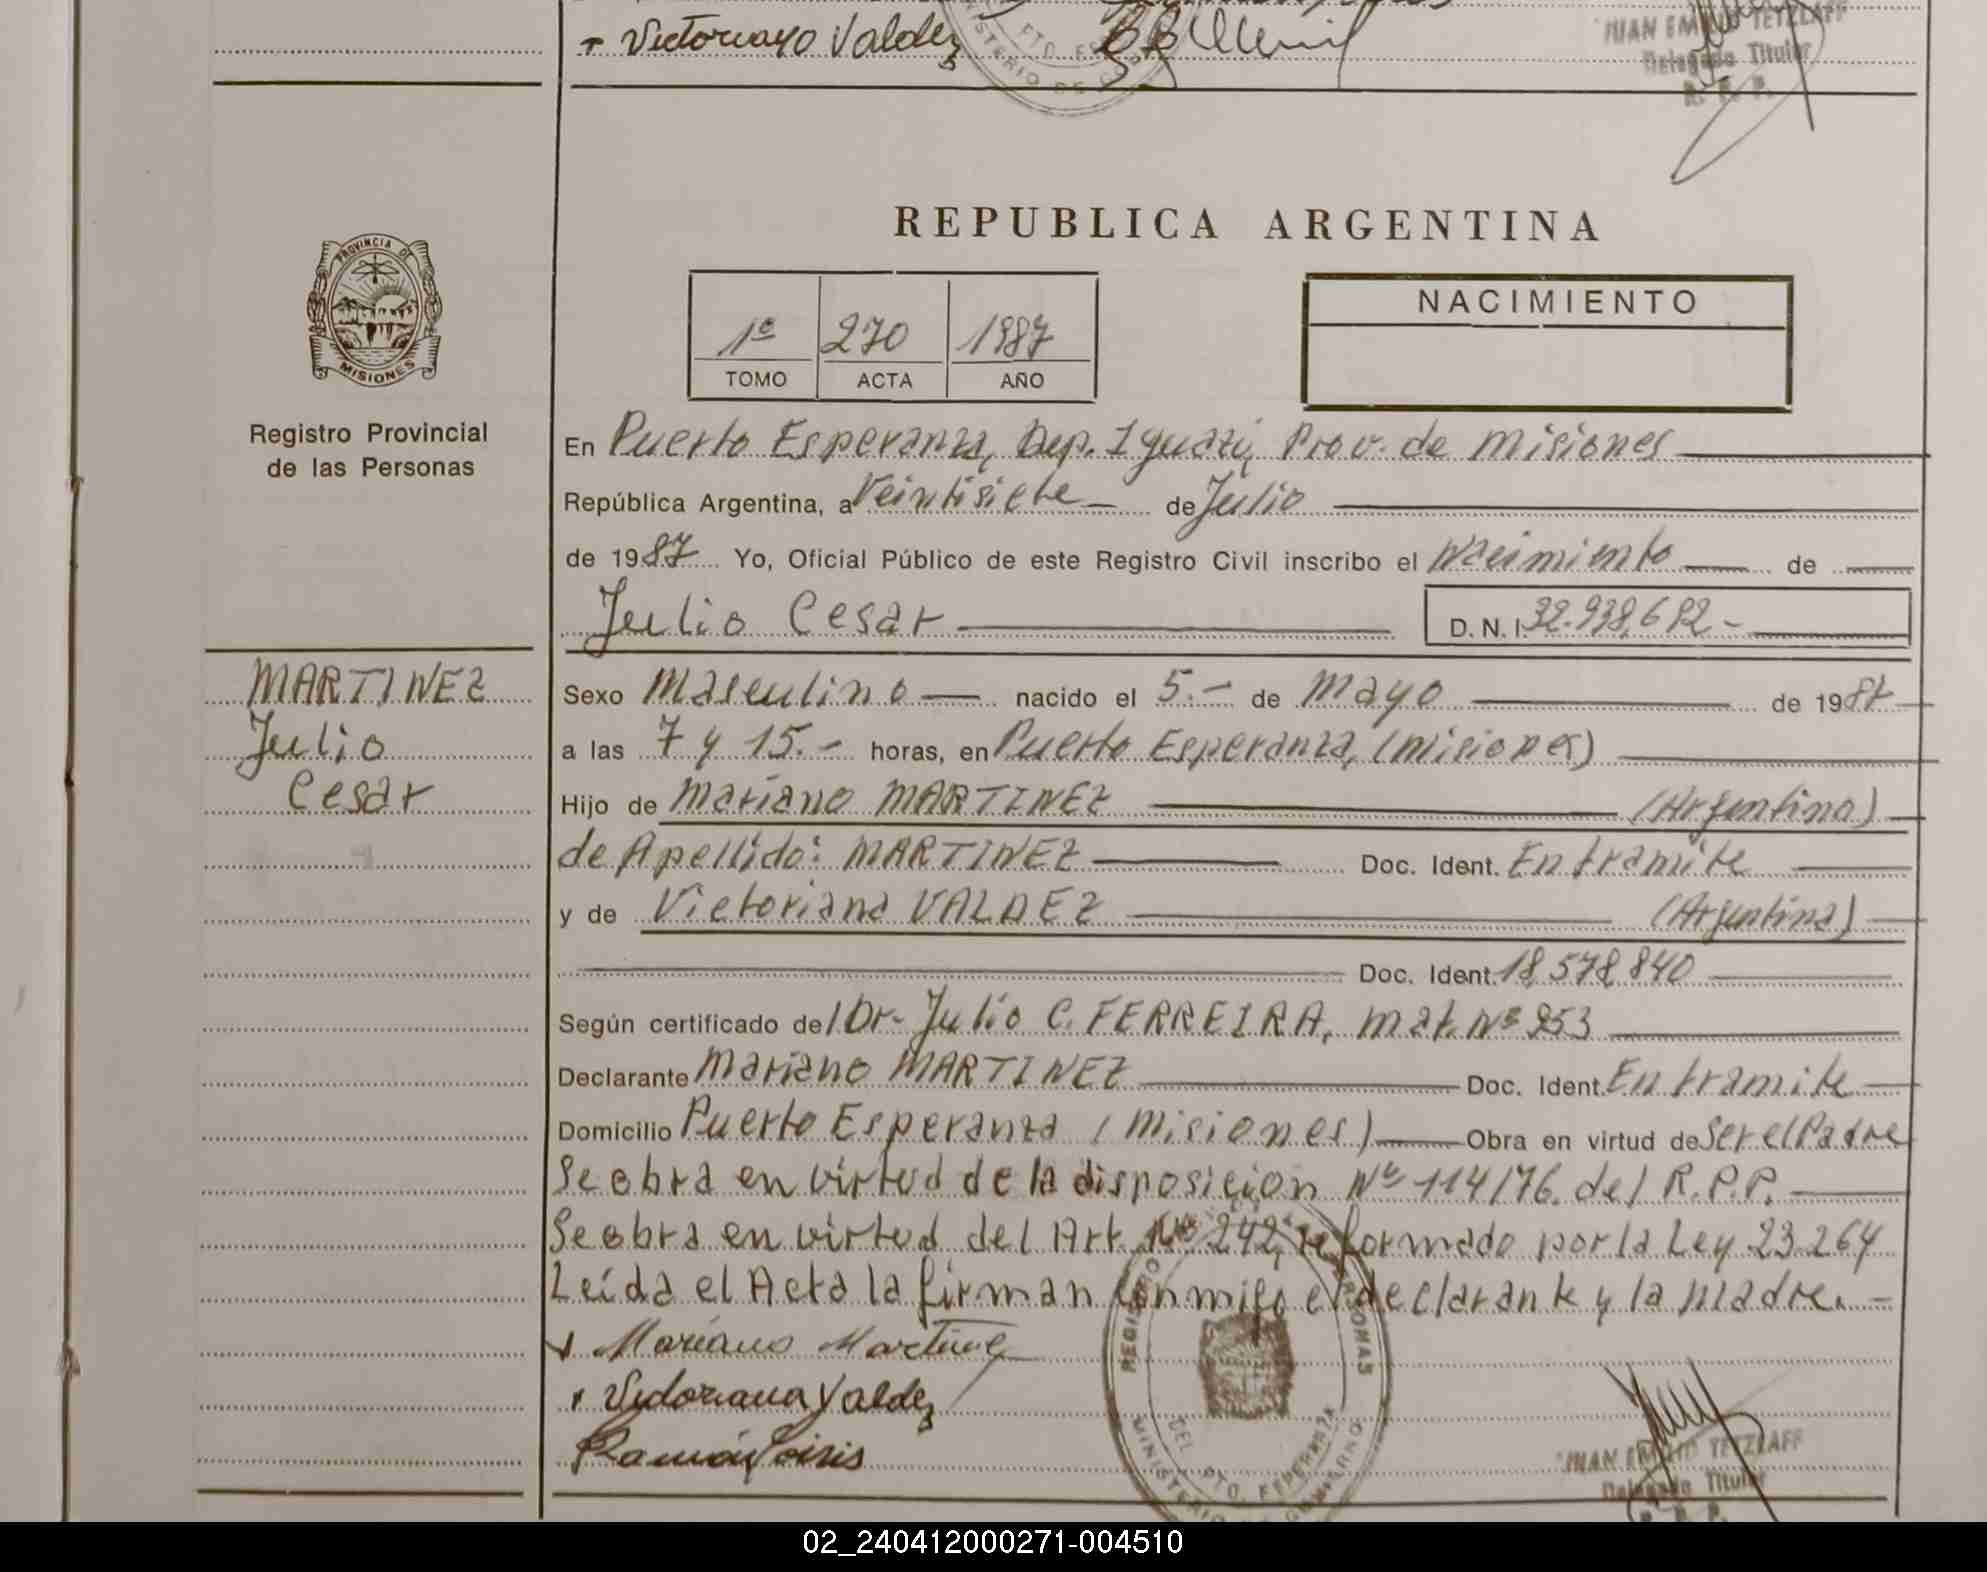 Victoriano Valdez
JUAN EMILIO TETZLAFF
Delegado Titular
R. P. P.
REPUBLICA ARGENTINA
PROVINCIA DE
MISIONES
1º 270 1987
TOMO ACTA AÑO
NACIMIENTO
Registro Provincial
de las Personas
En Puerto Esperanza, Dep. Iguazú, Prov. de Misiones
República Argentina, a Veintisiete de Julio
de 1987 Yo, Oficial Público de este Registro Civil inscribo el Nacimiento de
Julio Cesar D. N. I. 32.938,682-
MARTINEZ
Julio
Cesar
Sexo Masculino nacido el 5.- de Mayo de 1987
a las 7 y 15.- horas, en Puerto Esperanza, (Misiones)
Hijo de Mariano MARTINEZ (Argentino)
de Apellido: MARTINEZ Doc. Ident. En tramite
y de Victoriana VALDEZ (Argentina)
Doc. Ident. 18,578,840
Según certificado del Dr. Julio C. FERREIRA, Mat. Nº 253
Declarante Mariano MARTINEZ Doc. Ident. En tramite
Domicilio Puerto Esperanza (Misiones) Obra en virtud de Ser el Padre
Se obra en virtud de la disposicion Nº 114/76. del R.P.P.
Se obra en virtud del Art. Nº 242, reformado por la Ley 23.264
Leída el Acta la firman conmigo el declarante y la Madre. -
Mariano Martinez
Victoriana Valdez
Ramón
REGISTRO PERSONAS
DEL PTO. ESPERANZA
MINISTERIO DE GOBIERNO
JUAN EMILIO TETZLAFF
Delegado Titular
R. P. P.
02_240412000271-004510